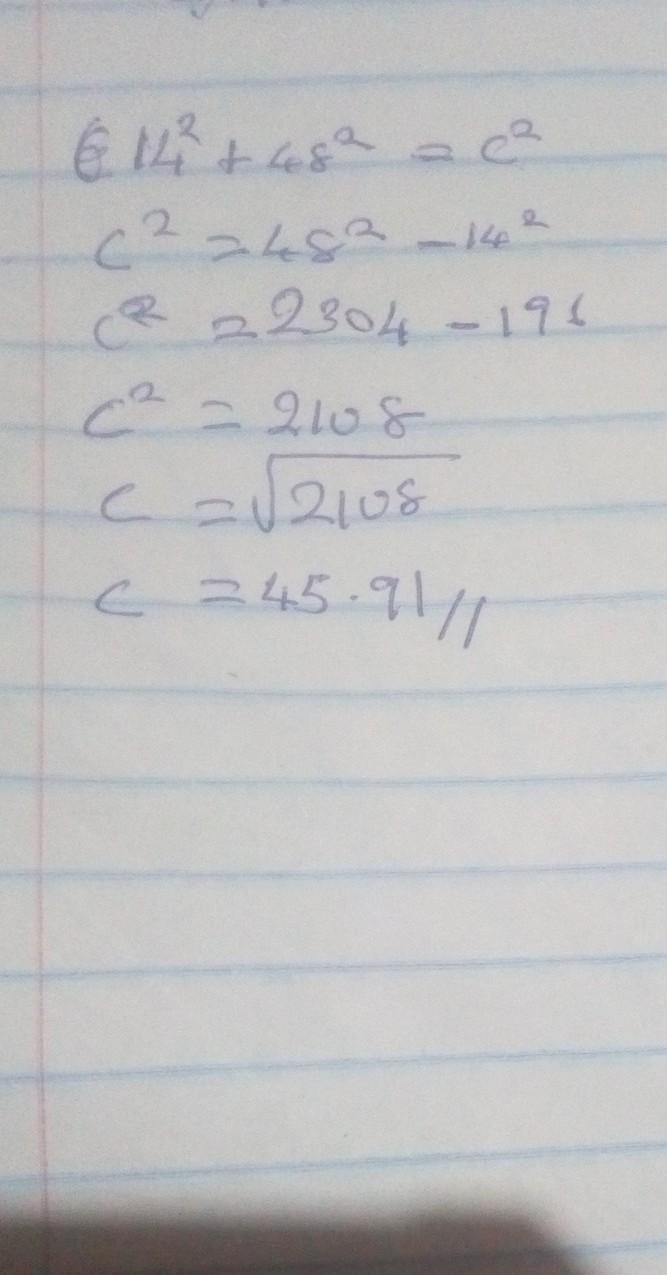 14² + 48² = c²
c² = 48² - 14²
c² = 2304 - 196
c² = 2108
c = √2108
c = 45.91//